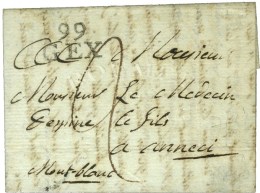 99
GEX
Monsieur
Monsieur Le Medecin
Despine le fils
a anneci
Mont-blanc